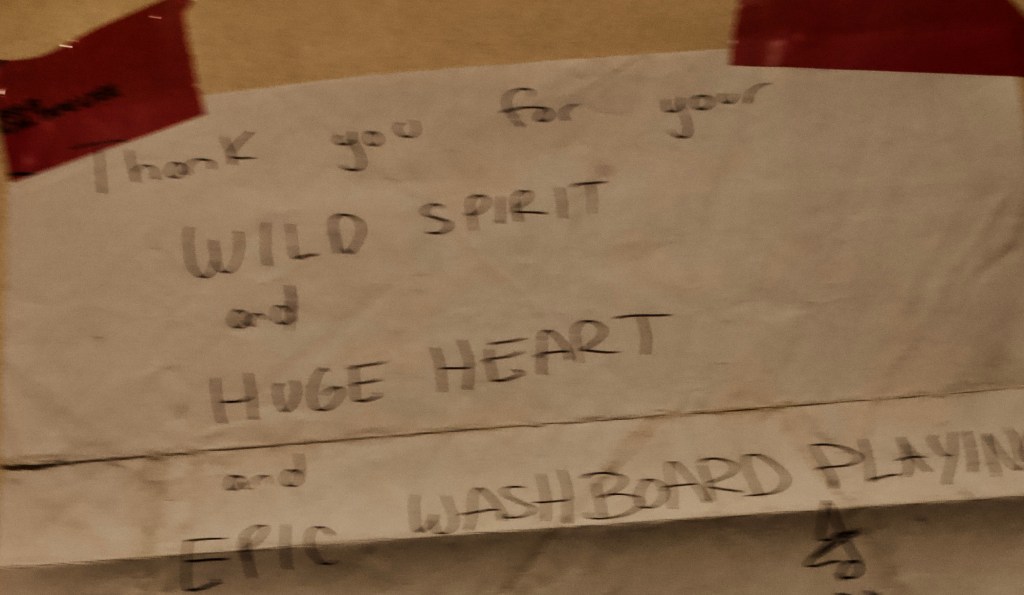 Thank you for your
WILD SPIRIT
and
HUGE HEART
and
EPIC WASHBOARD PLAYIN